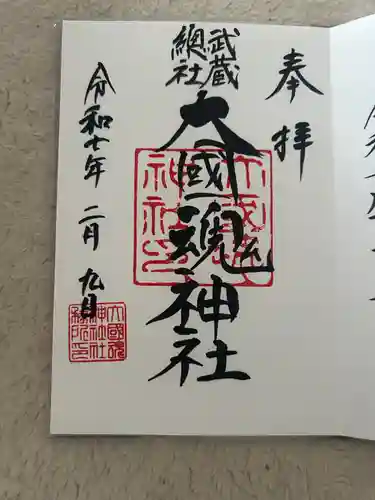 奉拝
武蔵
總社
大國魂神社
令和七年二月九日
大國魂
神社社
務所印